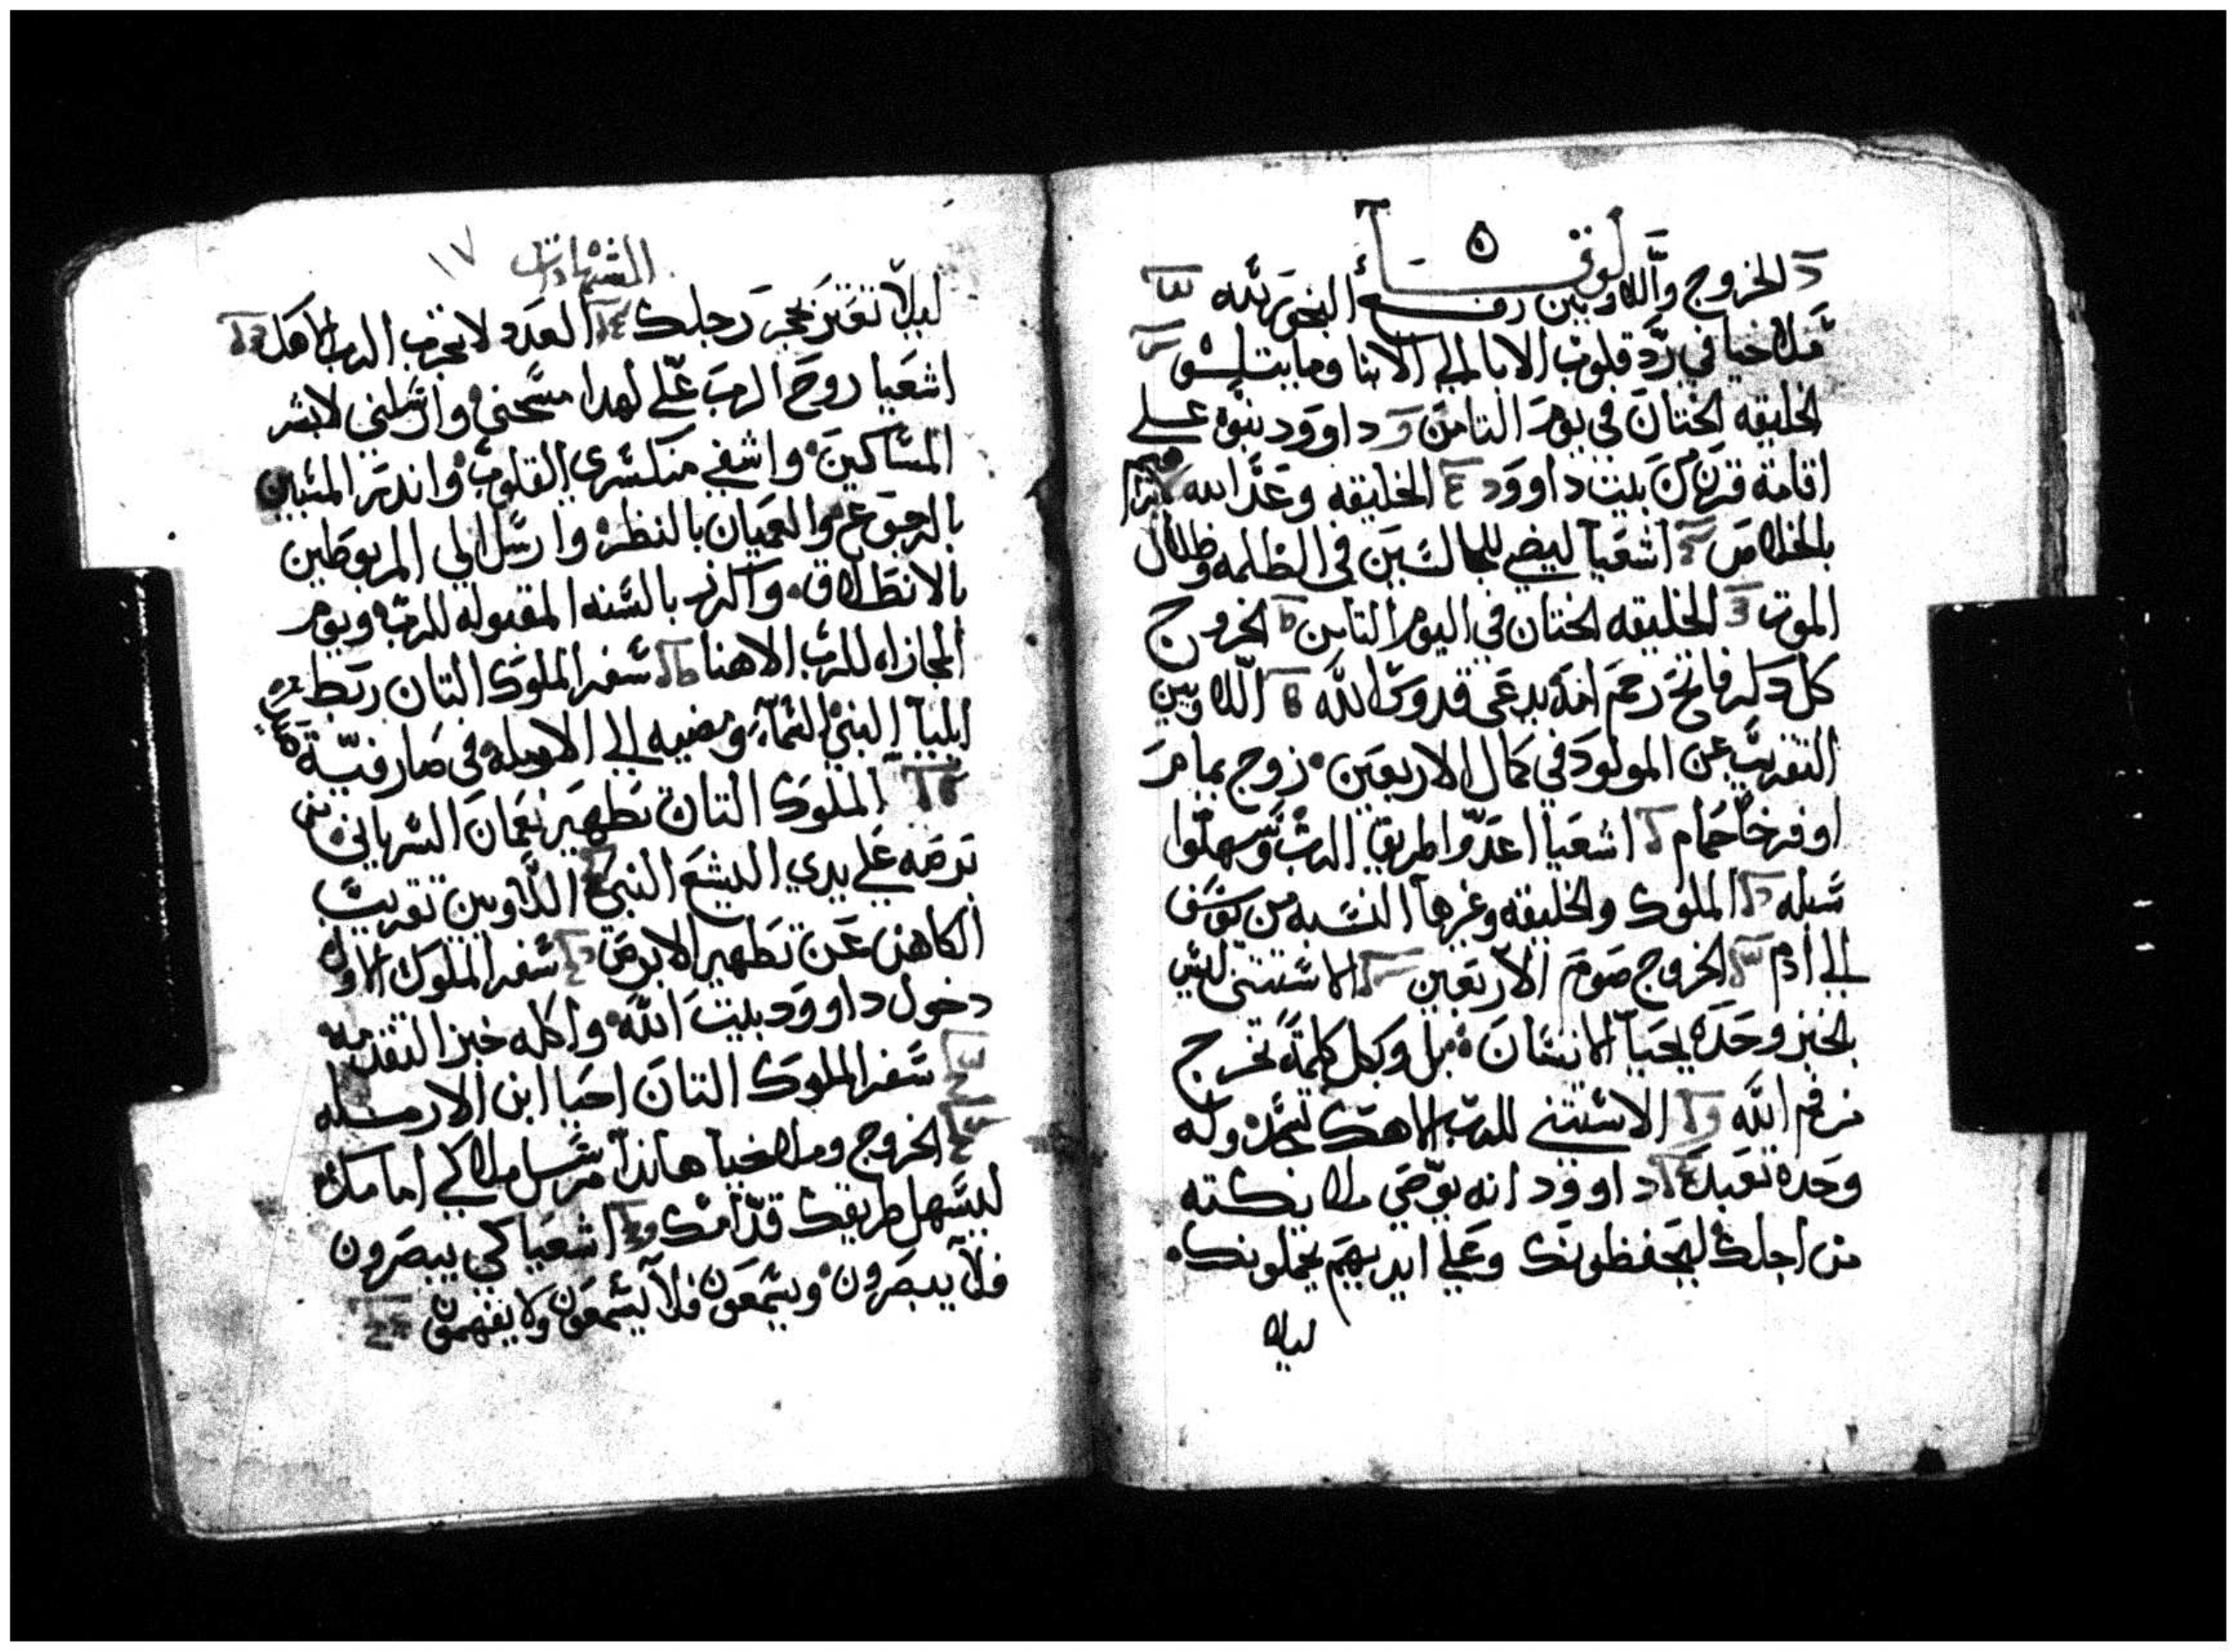 لوقا
الخروج واللاويين رفع البخور لله
ملاخيا في رد قلوب الابا الي الابنا وما يتلوه
الخليقه الختان في يوم التامن داوود نبوه علي
اقامة قرن من بيت داوود الخليقه وعد الله لابراهيم
بالخلاص اشعيا ليضي للجالسين في الظلمه وظلال
الموت الخليقه الختان في اليوم التامن الخروج
كل دكر فاتح رحم امه يدعي قدوس الله اللاويين
التقريب عن المولود في كمال الاربعين زوج يمام
او فرخا حمام اشعيا اعدوا طريق الرب وسهلوا
سبله الملوك والخليقه وغيرها النسبه من يوسف
الي ادم الخروج صوم الاربعين الاستتنى ليس
بالخبز وحده يحيا الانسان بل وبكل كلمة تخرج
من فم الله الاستتني للرب الاهك تسجد وله
وحده تعبد داوود انه يوصي ملايكته
من اجلك ليحفظونك وعلي ايديهم يحملونك
ليلا
الشهادات ١٧
ليلا تعتر بحجر رجلك العدد لا تجرب الرب الاهك
اشعيا روح الرب علي لهدا مسحني وارسلني لابشر
المساكين واشفي منكسري القلوب واندر المسبيين
بالرجوع والعميان بالنظر وارسل الي المربوطين
بالانطلاق واكرز بالسنه المقبوله للرب ويوم
المجازاه للرب الاهنا سفر الملوك التان ربط
ايليا النبي السماء ومضيه الي الارمله في صارفية صيدا
الملوك التان تطهير نعمان السرياني من
برصه علي يدي اليشع النبي اللاويين تقريب
الكاهن عن تطهير الابرص سفر الملوك الاول
دخول داوود بيت الله واكله خبز التقدمه
سفر الملوك التان احيا ابن الارمله
الخروج وملاخيا هاندا مرسل ملاكي امامك
ليسهل طريقك قدامك اشعيا كي يبصرون
فلا يبصرون ويسمعون فلا يسمعون ولا يفهمون